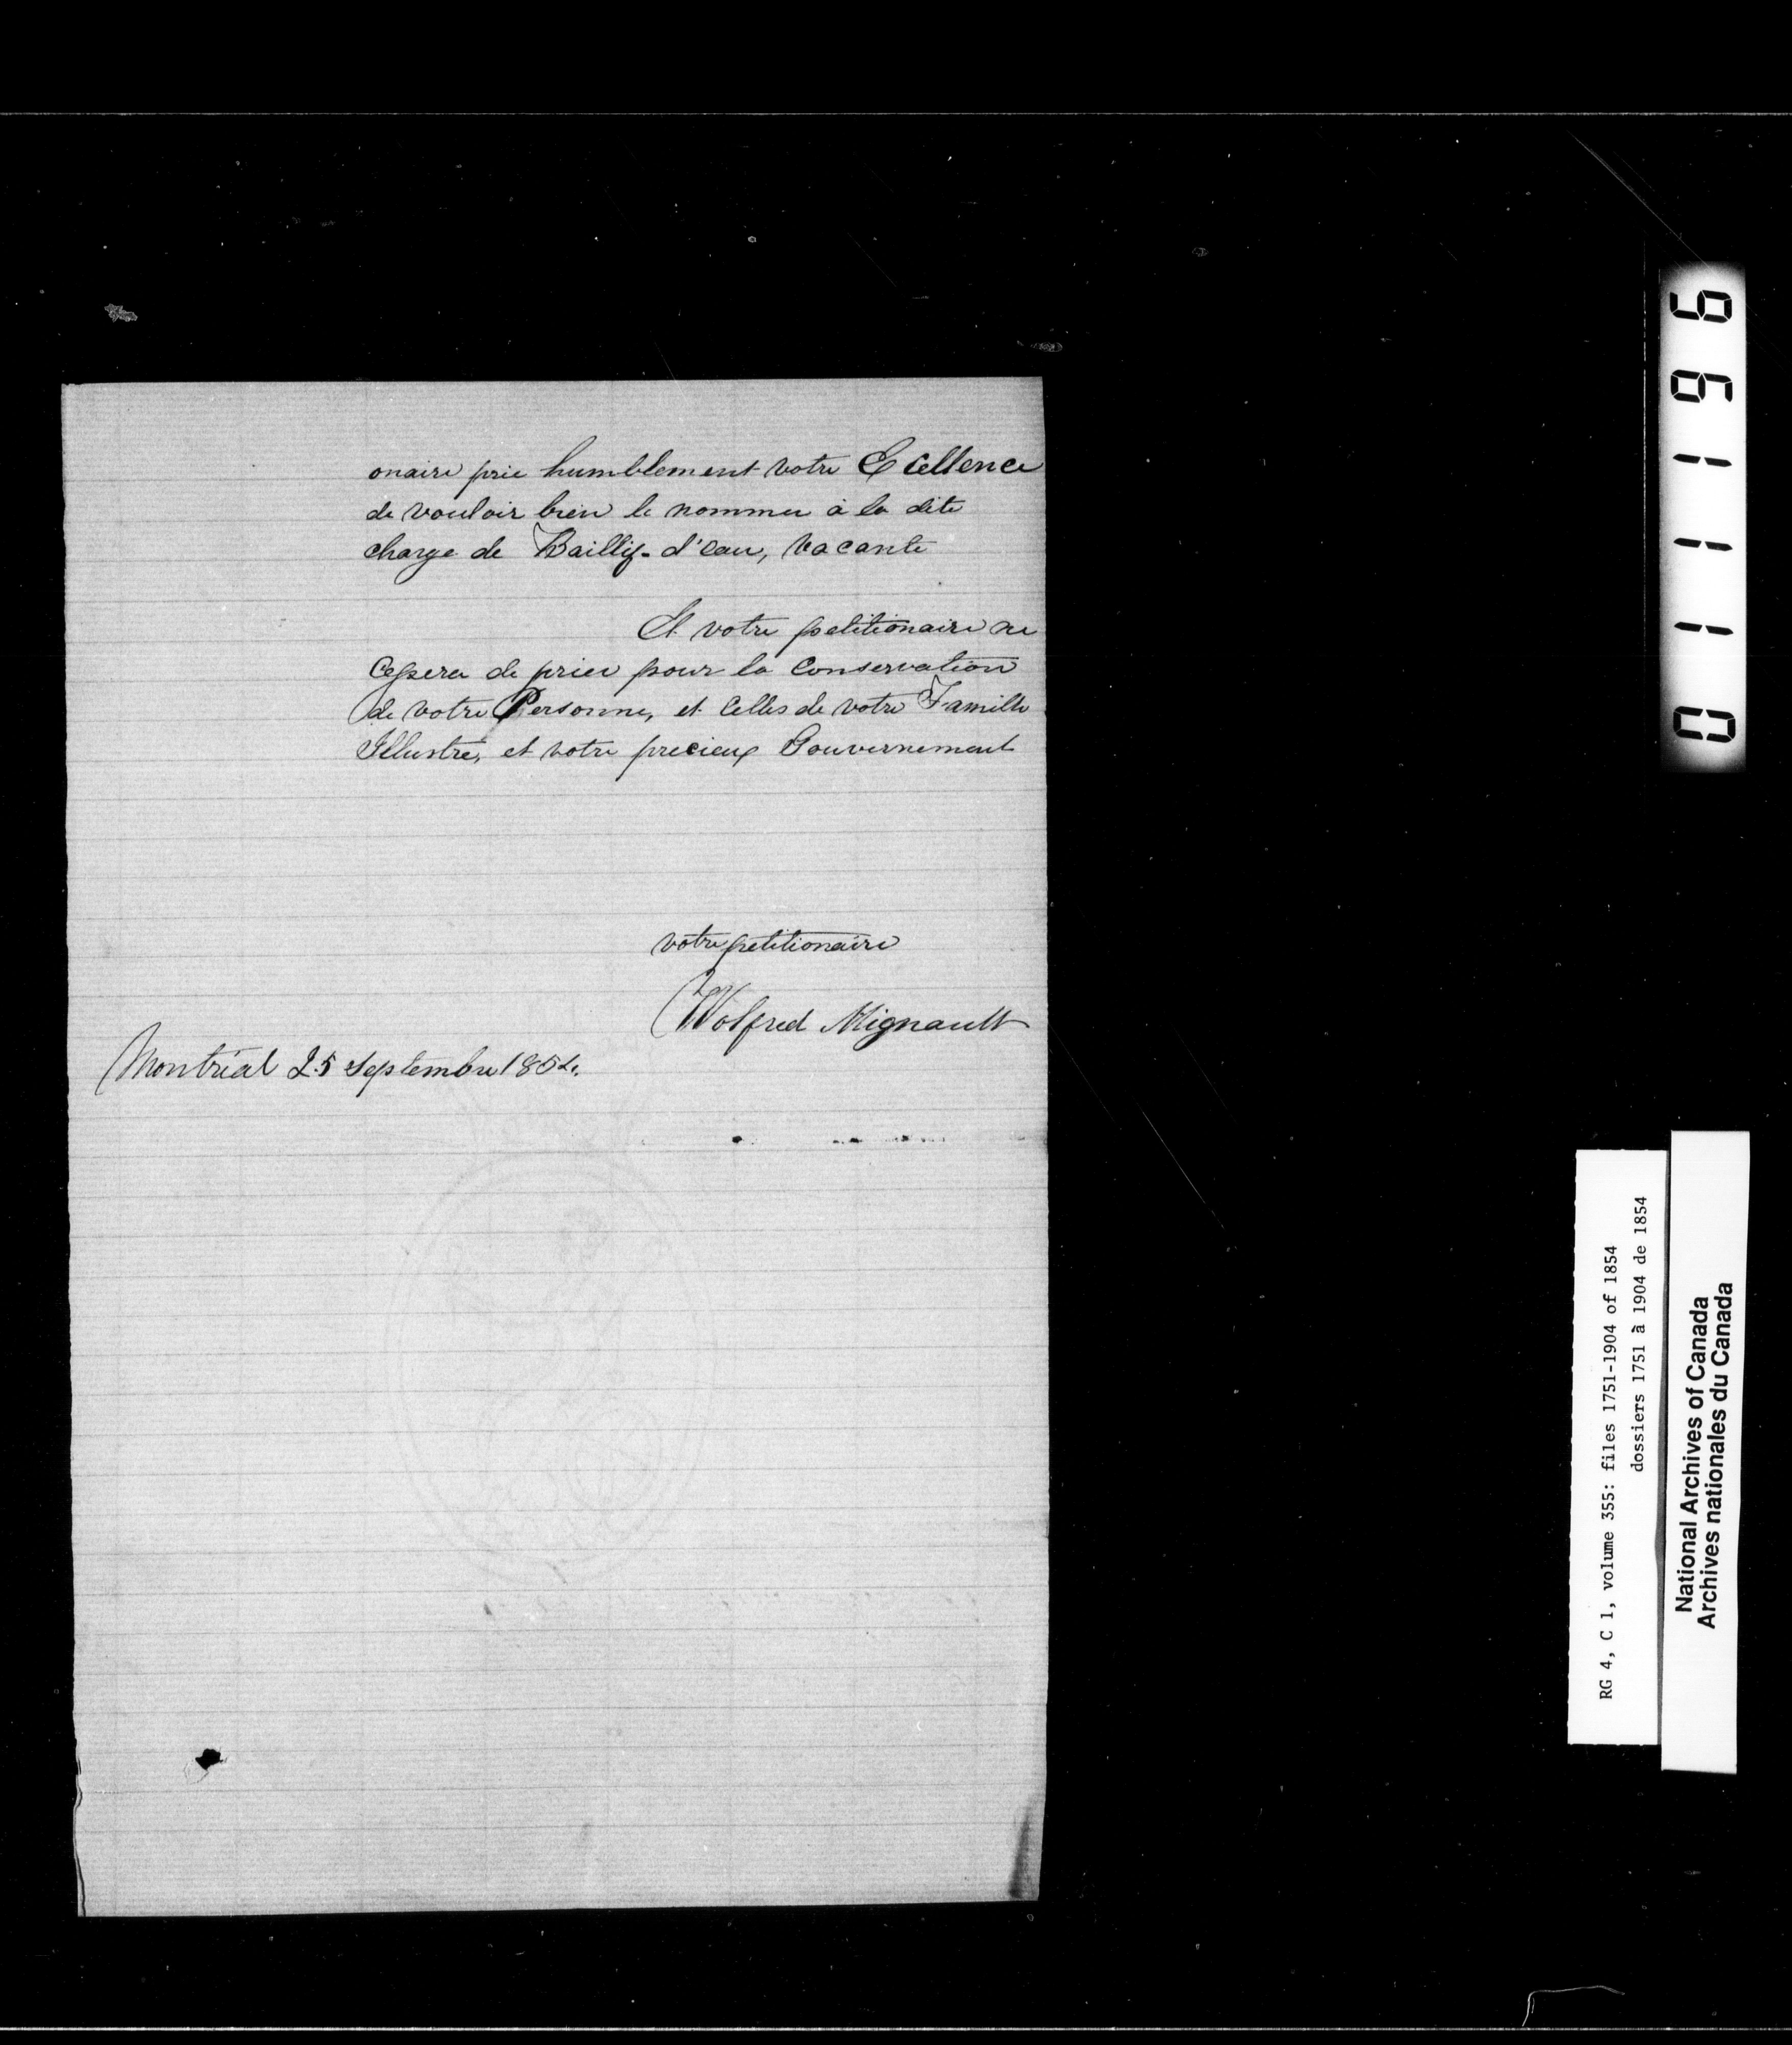 onaire prie humblement votre Excellence
de vouloir bien le nommer à la dite
charge de Baillif-d'eau, vacante
Et votre petitionaire ne
Cessera de prier pour la Conservation
de votre Personne, et Celles de votre Famille
Illustre, et votre precieux Gouvernement
votre petitionaire
Wolfred Mignault
Montréal 25 Septembre 1854.
011196
RG 4, C 1, volume 355: files 1751-1904 of 1854
dossiers 1751 à 1904 de 1854
National Archives of Canada
Archives nationales du Canada